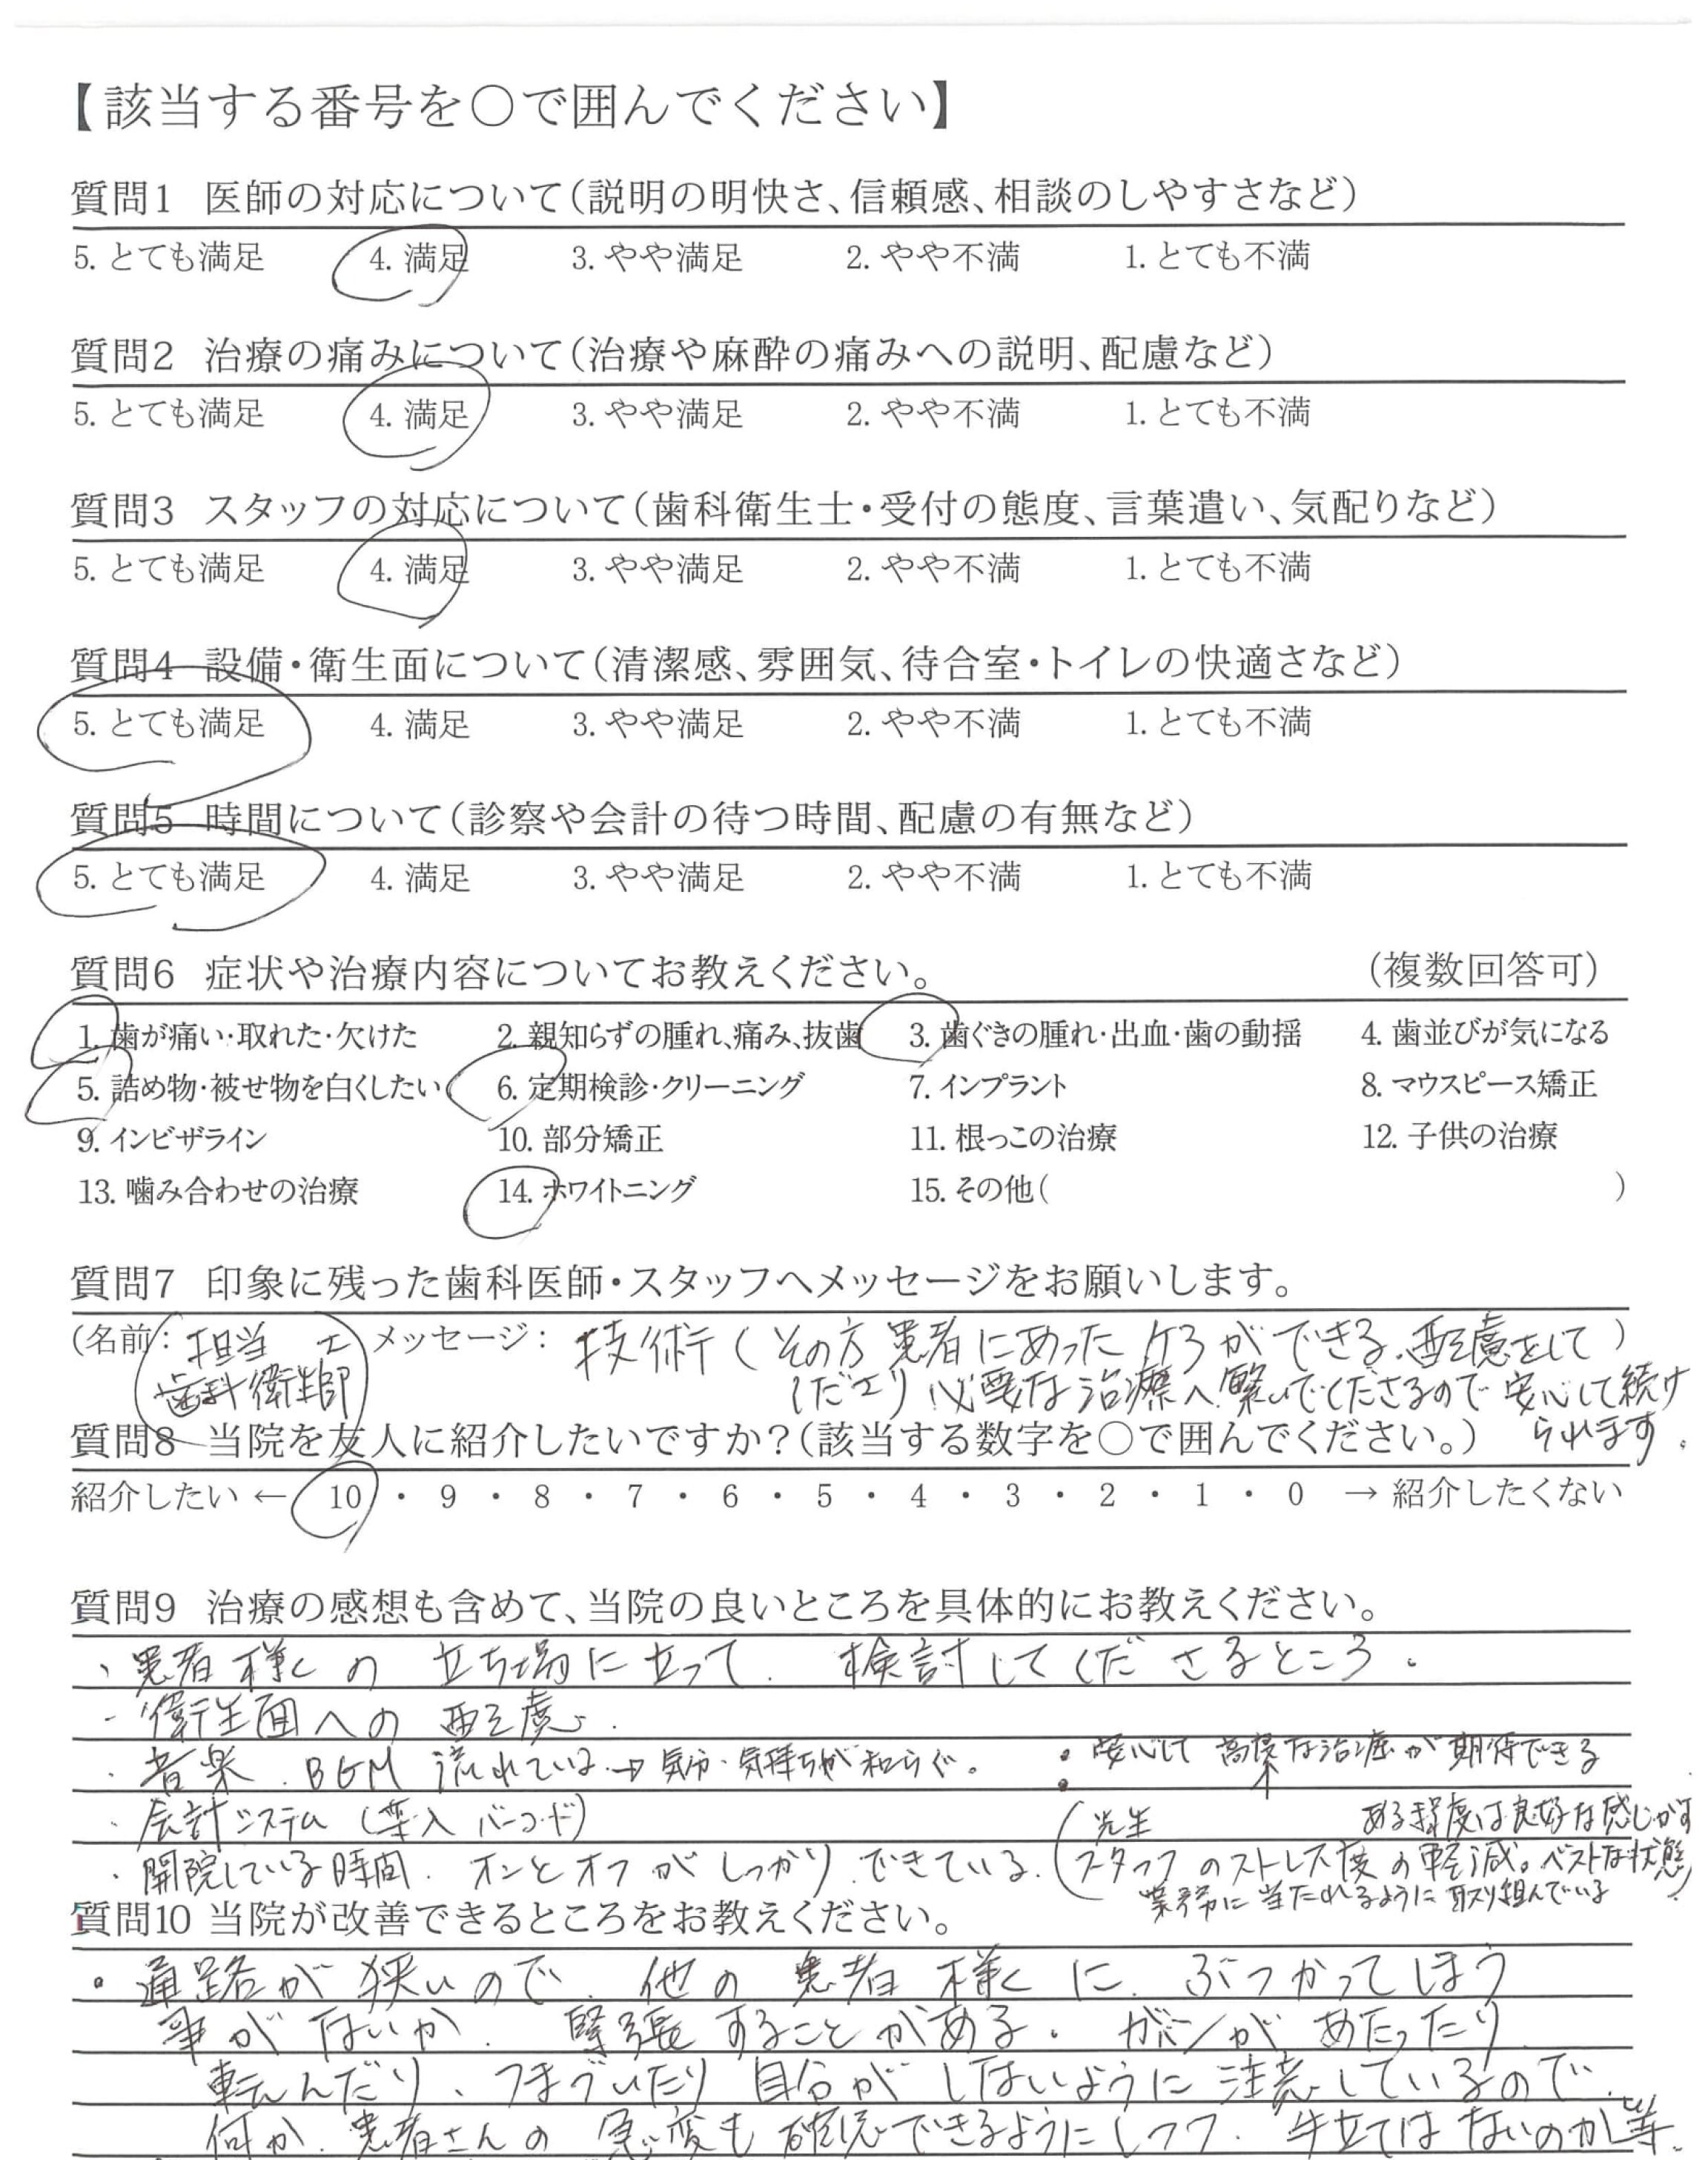 【該当する番号を○で囲んでください】
質問1 医師の対応について(説明の明快さ、信頼感、相談のしやすさなど)
5. とても満足 4. 満足 3. やや満足 2. やや不満 1. とても不満
質問2 治療の痛みについて(治療や麻酔の痛みへの説明、配慮など)
5. とても満足 4. 満足 3. やや満足 2. やや不満 1. とても不満
質問3 スタッフの対応について(歯科衛生士・受付の態度、言葉遣い、気配りなど)
5. とても満足 4. 満足 3. やや満足 2. やや不満 1. とても不満
質問4 設備・衛生面について(清潔感、雰囲気、待合室・トイレの快適さなど)
5. とても満足 4. 満足 3. やや満足 2. やや不満 1. とても不満
質問5 時間について(診察や会計の待つ時間、配慮の有無など)
5. とても満足 4. 満足 3. やや満足 2. やや不満 1. とても不満
質問6 症状や治療内容についてお教えください。 (複数回答可)
1. 歯が痛い・取れた・欠けた 2. 親知らずの腫れ、痛み、抜歯 3. 歯ぐきの腫れ・出血・歯の動揺 4. 歯並びが気になる
5. 詰め物・被せ物を白くしたい 6. 定期検診・クリーニング 7. インプラント 8. マウスピース矯正
9. インビザライン 10. 部分矯正 11. 根っこの治療 12. 子供の治療
13. 噛み合わせの治療 14. ホワイトニング 15. その他( )
質問7 印象に残った歯科医師・スタッフへメッセージをお願いします。
(名前: 担当 士 メッセージ: 技術(その方患者にあったケアができる.配慮をして)
歯科衛生師 くださり必要な治療へ繋いでくださるので安心して続け
られます.
質問8 当院を友人に紹介したいですか?(該当する数字を○で囲んでください。)
紹介したい ← 10 ・ 9 ・ 8 ・ 7 ・ 6 ・ 5 ・ 4 ・ 3 ・ 2 ・ 1 ・ 0 → 紹介したくない
質問9 治療の感想も含めて、当院の良いところを具体的にお教えください。
・患者様の立ち場に立って. 検討してくださるところ.
・衛生面への配慮.
・音楽. BGM 流れている→気分・気持ちが和らぐ。 ・安心して高度な治療が期待できる
・会計システム (導入バーコード) (先生 ある程度は良好な感じがす
・開院している時間. オンとオフがしっかりできている. スタッフのストレス度の軽減。ベストな状態)
業務に当たれるように取り組んでいる
質問10 当院が改善できるところをお教えください。
・通路が狭いので. 他の患者様に. ぶつかってしまう
事がないか. 緊張することがある. ガンがあたったり
転んだり、つまづいたり自分がしないように注意しているので.
何か. 患者さんの急変も確認できるようにしつつ. 手立てはないのか等.